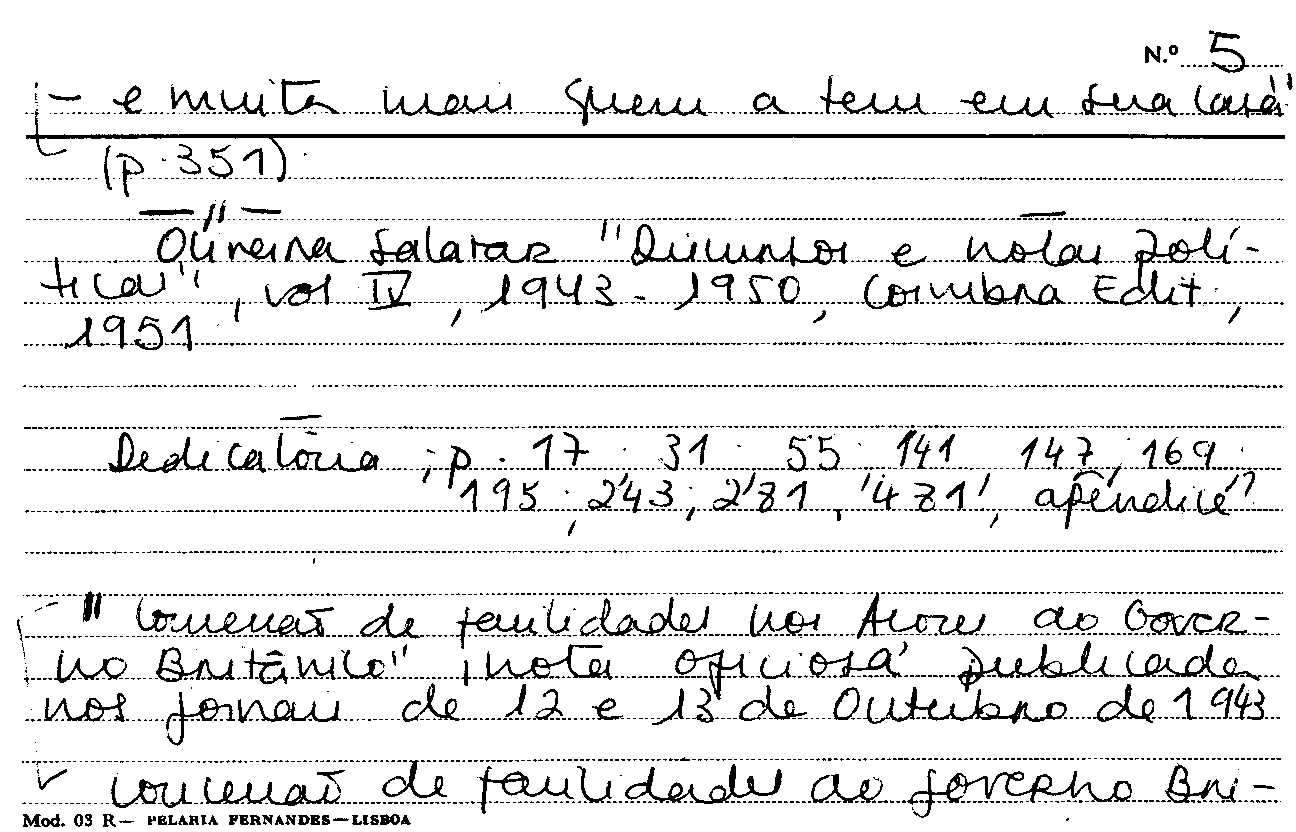 N.º 5
- e muita mais quem a tem em sua casa"
(p. 351).
— " —
Oliveira Salazar "Discursos e notas polí-
ticas", vol IV, 1943-1950, Coimbra Edit.,
1951
Dedicatória; p. 17, 31, 55, 141, 147, 169.
195; 243; 281, 481, apêndice
"Concessão de facilidades nos Açores ao Gover-
no Britânico", nota oficiosa publicada
nos jornais de 12 e 13 de Outubro de 1943
Concessão de facilidades ao governo Bri-
Mod. 03 R — PELARIA FERNANDES — LISBOA